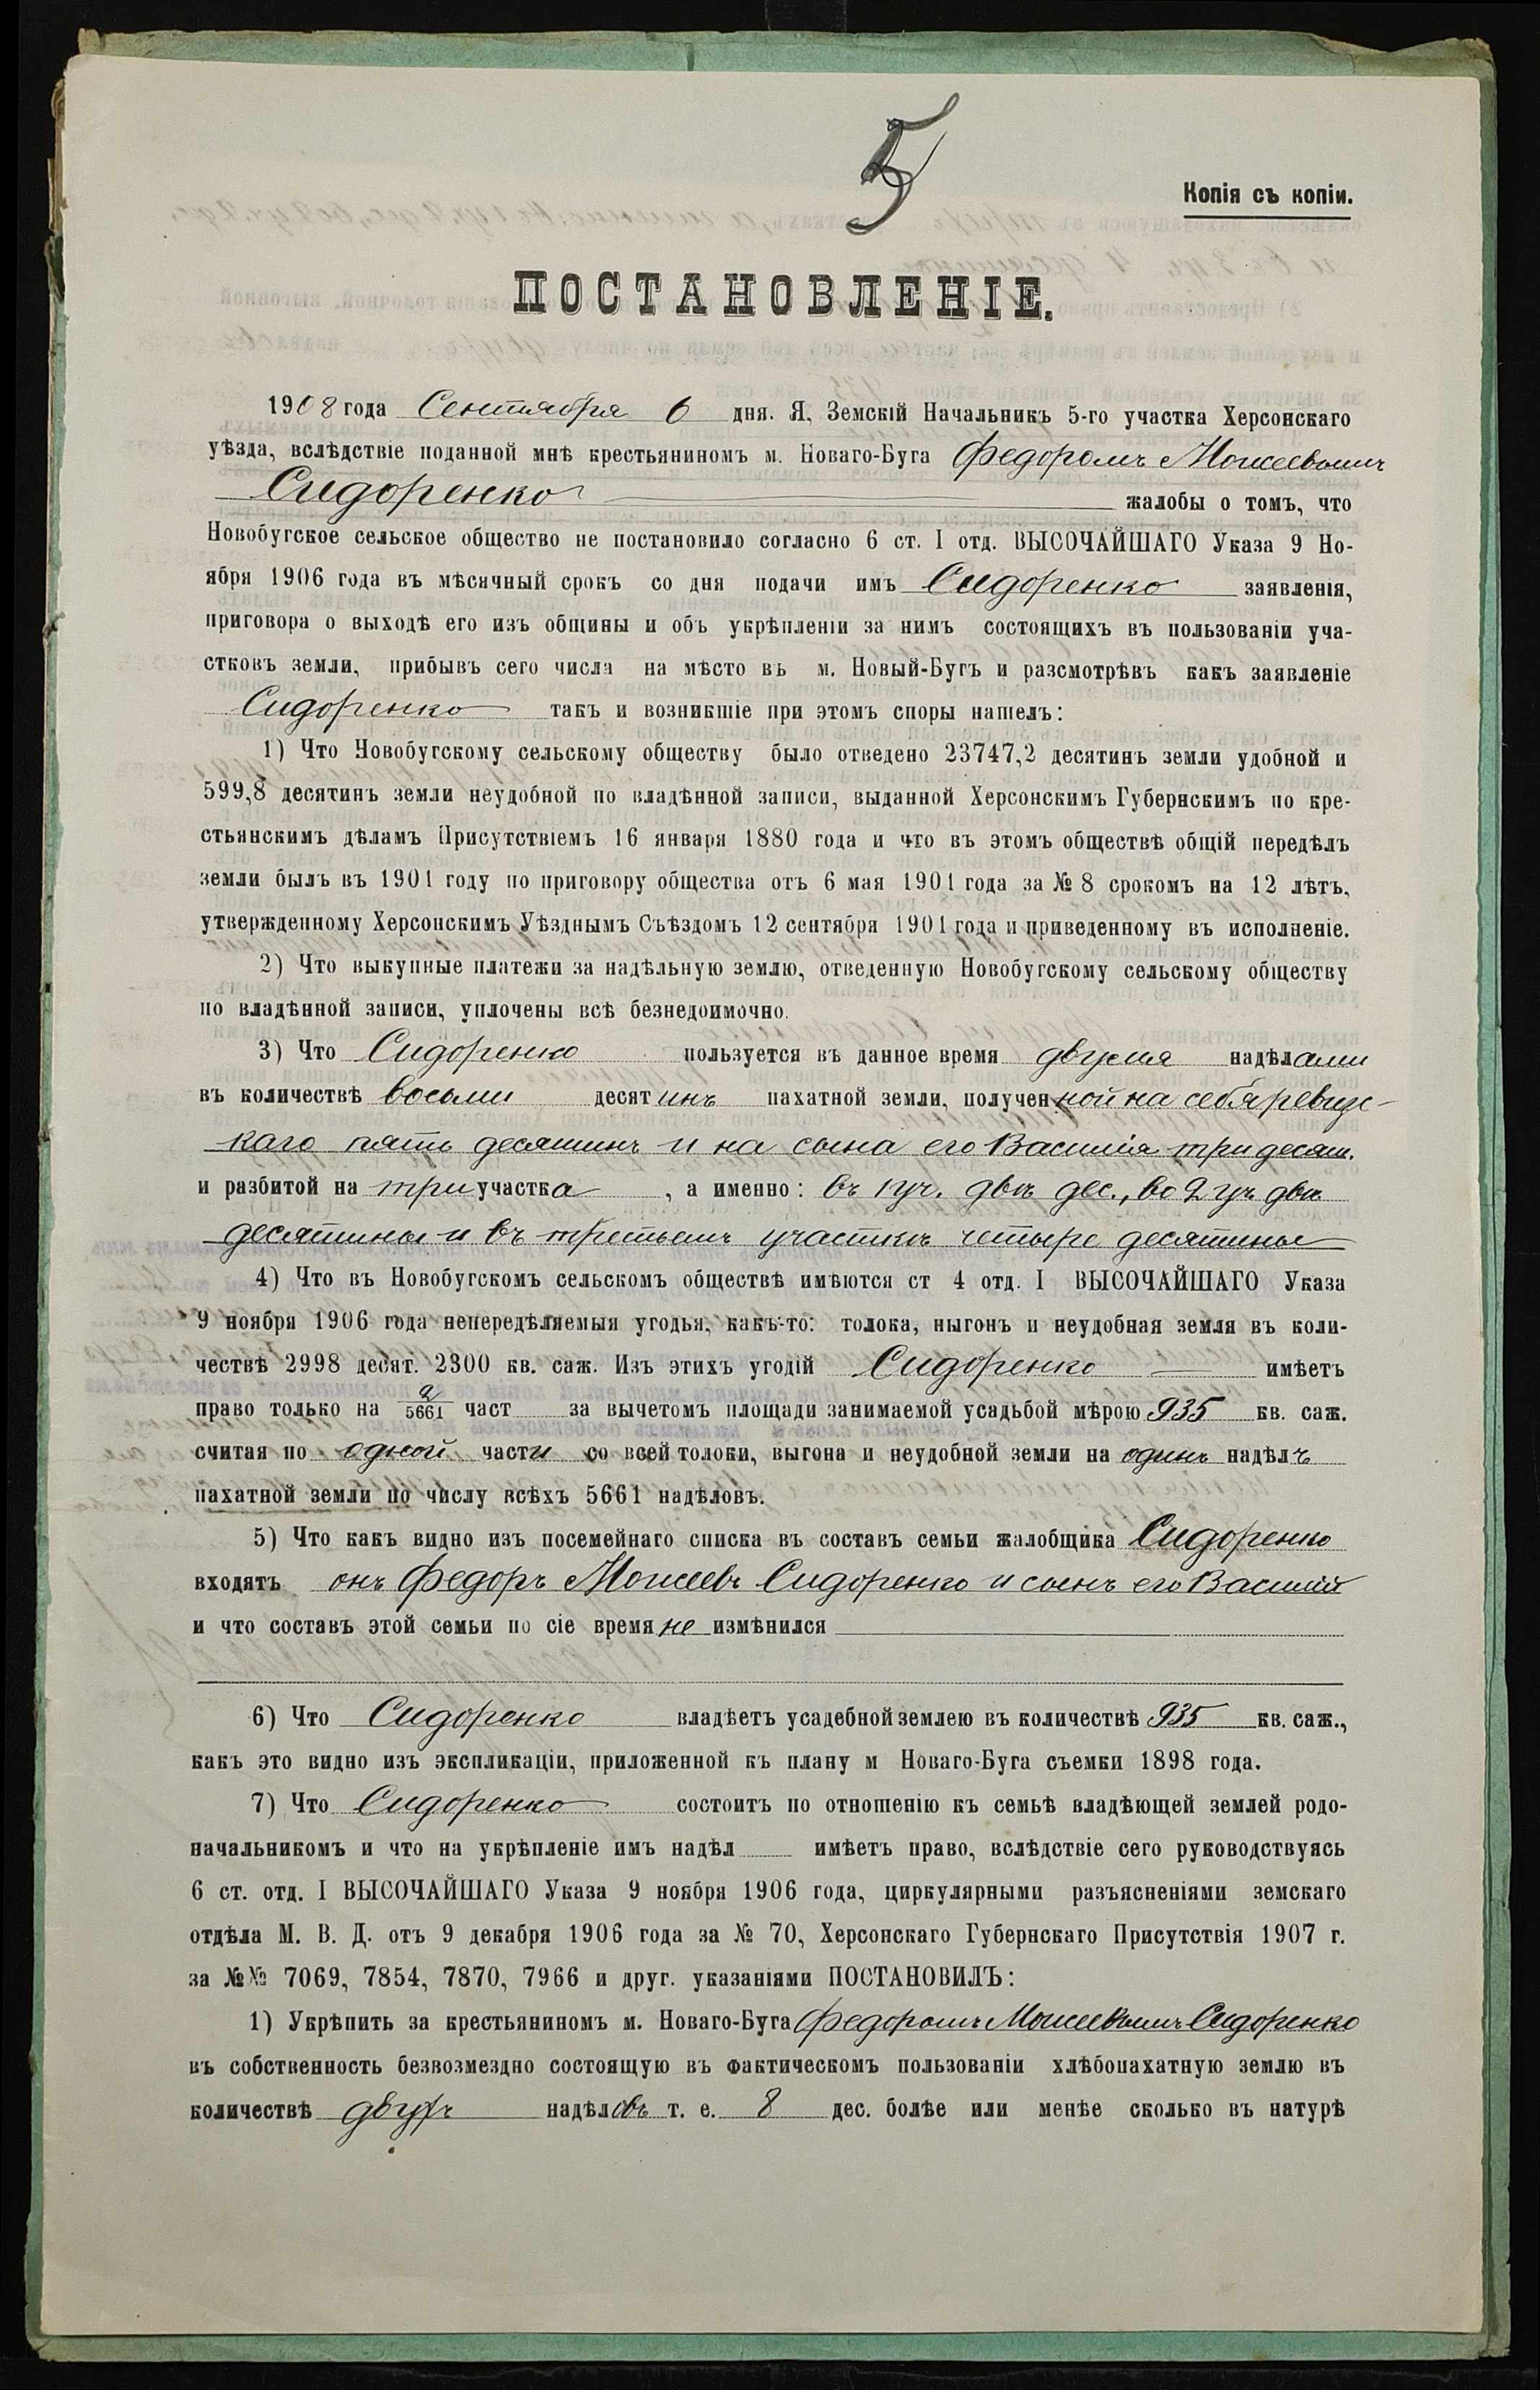 5
Копія съ копіи.
ПОСТАНОВЛЕНІЕ.
1908 года Сентября 6 дня. Я, Земскій Начальникъ 5-го участка Херсонскаго
уѣзда, вслѣдствіе поданной мнѣ крестьяниномъ м. Новаго-Буга Федоромъ Моисеевымъ
Сидоренко жалобы о томъ, что
Новобугское сельское общество не постановило согласно 6 ст. I отд. ВЫСОЧАЙШАГО Указа 9 Но-
ября 1906 года въ мѣсячный срокъ со дня подачи имъ Сидоренко заявленія,
приговора о выходѣ его изъ общины и объ укрѣпленіи за нимъ состоящихъ въ пользованіи уча-
стковъ земли, прибывъ сего числа на мѣсто въ м. Новый-Бугъ и разсмотрѣвъ какъ заявленіе
Сидоренко такъ и возникшіе при этомъ споры нашелъ:
1) Что Новобугскому сельскому обществу было отведено 23747,2 десятинъ земли удобной и
599,8 десятинъ земли неудобной по владѣнной записи, выданной Херсонскимъ Губернскимъ по кре-
стьянскимъ дѣламъ Присутствіемъ 16 января 1880 года и что въ этомъ обществѣ общій передѣлъ
земли былъ въ 1901 году по приговору общества отъ 6 мая 1901 года за № 8 срокомъ на 12 лѣтъ,
утвержденному Херсонскимъ Уѣзднымъ Съѣздомъ 12 сентября 1901 года и приведенному въ исполненіе.
2) Что выкупные платежи за надѣльную землю, отведенную Новобугскому сельскому обществу
по владѣнной записи, уплочены всѣ безнедоимочно.
3) Что Сидоренко пользуется въ данное время двумя надѣлами
въ количествѣ восьми десятинъ пахатной земли, полученной на себя ревизс-
каго пять десятинъ и на сына его Василія три десят.
и разбитой на три участка, а именно: въ 1 уч. двѣ дес., во 2 уч. двѣ
десятины и въ третьемъ участкѣ четыре десятины
4) Что въ Новобугскомъ сельскомъ обществѣ имѣются ст 4 отд. I ВЫСОЧАЙШАГО Указа
9 ноября 1906 года непередѣляемыя угодья, какъ-то: толока, выгонъ и неудобная земля въ коли-
чествѣ 2998 десят. 2300 кв. саж. Изъ этихъ угодій Сидоренко имѣетъ
право только на 2/5661 част за вычетомъ площади занимаемой усадьбой мѣрою 935 кв. саж.
считая по одной части со всей толоки, выгона и неудобной земли на одинъ надѣлъ
пахатной земли по числу всѣхъ 5661 надѣловъ.
5) Что какъ видно изъ посемейнаго списка въ составъ семьи жалобщика Сидоренко
входятъ онъ Федоръ Моисеевъ Сидоренко и сынъ его Василій
и что составъ этой семьи по сіе время не измѣнился
6) Что Сидоренко владѣетъ усадебной землею въ количествѣ 935 кв. саж.,
какъ это видно изъ экспликаціи, приложенной къ плану м Новаго-Буга съемки 1898 года.
7) Что Сидоренко состоитъ по отношенію къ семьѣ владѣющей землей родо-
начальникомъ и что на укрѣпленіе имъ надѣл имѣетъ право, вслѣдствіе сего руководствуясь
6 ст. отд. I ВЫСОЧАЙШАГО Указа 9 ноября 1906 года, циркулярными разъясненіями земскаго
отдѣла М. В. Д. отъ 9 декабря 1906 года за № 70, Херсонскаго Губернскаго Присутствія 1907 г.
за №№ 7069, 7854, 7870, 7966 и друг. указаніями ПОСТАНОВИЛЪ:
1) Укрѣпить за крестьяниномъ м. Новаго-Буга Федоромъ Моисеевымъ Сидоренко
въ собственность безвозмездно состоящую въ фактическомъ пользованіи хлѣбопахатную землю въ
количествѣ двухъ надѣловъ т. е. 8 дес. болѣе или менѣе сколько въ натурѣ